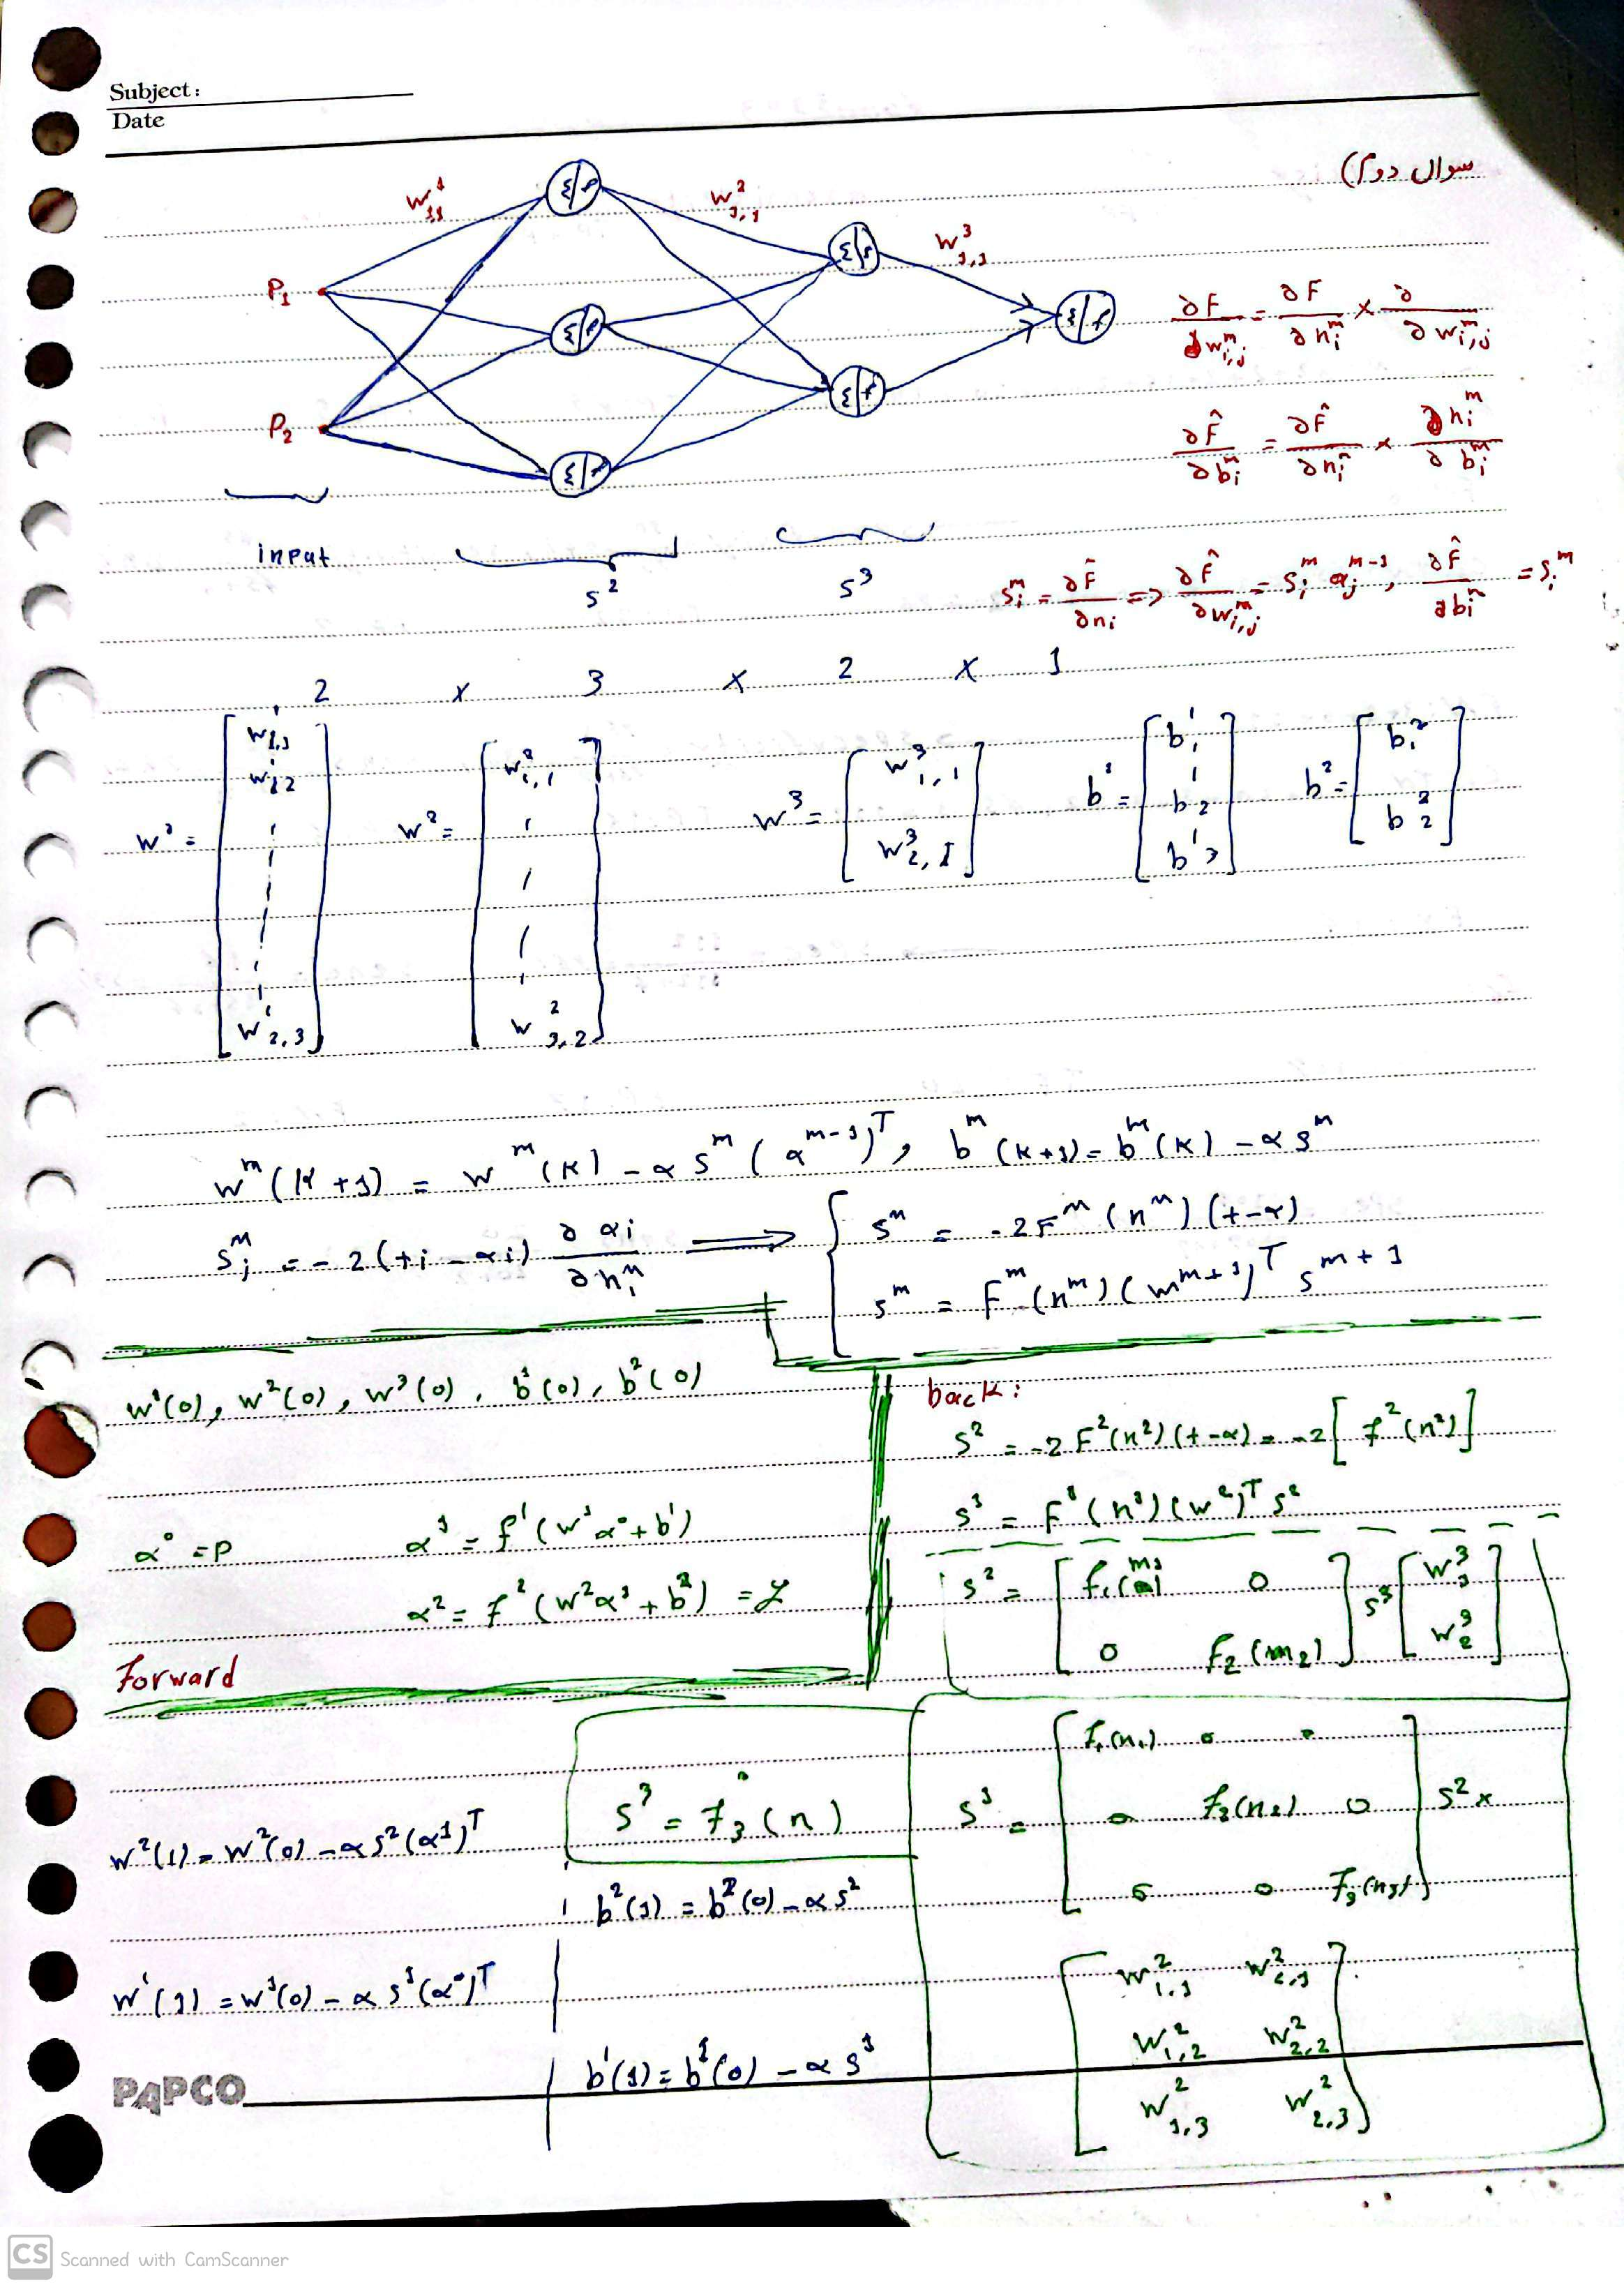 Subject:
Date
سوال دوم)
w^1_{1,1} w^2_{1,1} w^3_{1,1}
P_1
P_2
Σ/f Σ/f Σ/f Σ/f Σ/f Σ/f
∂F/∂w^m_{i,j} = ∂F/∂n^m_i × ∂/∂w^m_{i,j}
∂F̂/∂b^m_i = ∂F̂/∂n^m_i × ∂n^m_i/∂b^m_i
input s^2 s^3
s^m_i = ∂F̂/∂n_i => ∂F̂/∂w^m_{i,j} = s^m_i α^{m-1}_j, ∂F̂/∂b^m_i = s^m_i
2 × 3 × 2 × 1
w^1 = [w^1_{1,1} w^1_{1,2} ... w^1_{2,3}] w^2 = [w^2_{1,1} ... w^2_{3,2}] w^3 = [w^3_{1,1} w^3_{2,1}] b^1 = [b^1_1 b^1_2 b^1_3] b^2 = [b^2_1 b^2_2]
w^m(k+1) = w^m(k) - α s^m (α^{m-1})^T, b^m(k+1) = b^m(k) - α s^m
s^m_i = -2(t_i - α_i) ∂α_i/∂n^m_i ⟹ { s^m = -2F^m(n^m)(t-α)
s^m = F^m(n^m)(w^{m+1})^T s^{m+1}
w^1(0), w^2(0), w^3(0), b^1(0), b^2(0)
α^0 = P α^1 = f^1(w^1α^0 + b^1)
α^2 = f^2(w^2α^1 + b^2) = y
Forward
back:
s^2 = -2F^2(n^2)(t-α) = -2[f^2(n^2)]
s^1 = F^1(n^1)(w^2)^T s^2
s^2 = [f_1(m_1) 0
0 f_2(m_2)] s^3 [w^3_1
w^3_2]
s^3 = ḟ_3(n)
s^1 = [f_1(n_1) 0 0
0 f_2(n_2) 0
0 0 f_3(n_3)] s^2 ×
[w^2_{1,1} w^2_{2,1}
w^2_{1,2} w^2_{2,2}
w^2_{1,3} w^2_{2,3}]
w^2(1) = w^2(0) - α s^2(α^1)^T
b^2(1) = b^2(0) - α s^2
w^1(1) = w^1(0) - α s^1(α^0)^T
b^1(1) = b^1(0) - α s^1
PAPCO
CS Scanned with CamScanner